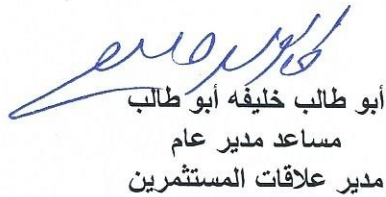 أبو طالب خليفه أبو طالب
مساعد مدير عام
مدير علاقات المستثمرين